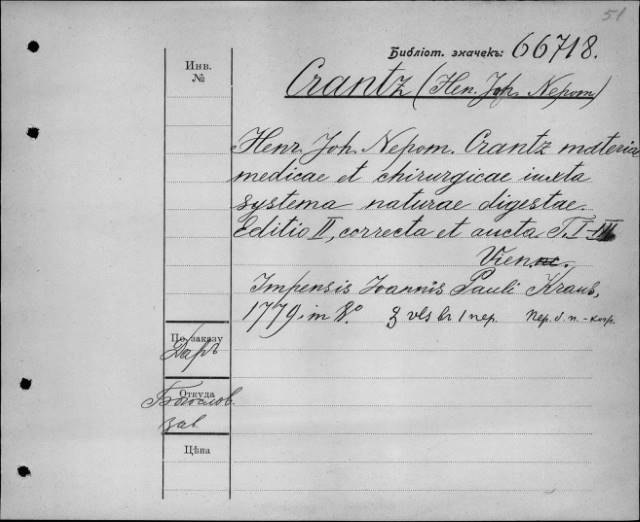 51
Библіот. значекъ: 66718.
Инв.
№
Crantz (Hen. Joh. Nepom)
Henr. Joh. Nepom. Crantz materia
medicae et chirurgicae iuxta
systema naturae digestae.
Editio II, correcta et aucta. T. I-III
Vien.
Impensis Joannis Pauli Kraus,
1779, in 8.º 3 vls br 1 пер. Пер. б. п. - кор.
По заказу
Даръ
Откуда
Богослов.
зав
Цѣна